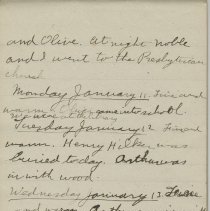 and Olive. At night noble
and I went to the Presbyterian
church
Monday January 11. Fine and
warm. came into school.
We were at the
Tuesday January 12 Fine and
warm. Henry Hilke was
buried today. Arthur was
in with wood.
Wednesday January 13.
and warm.